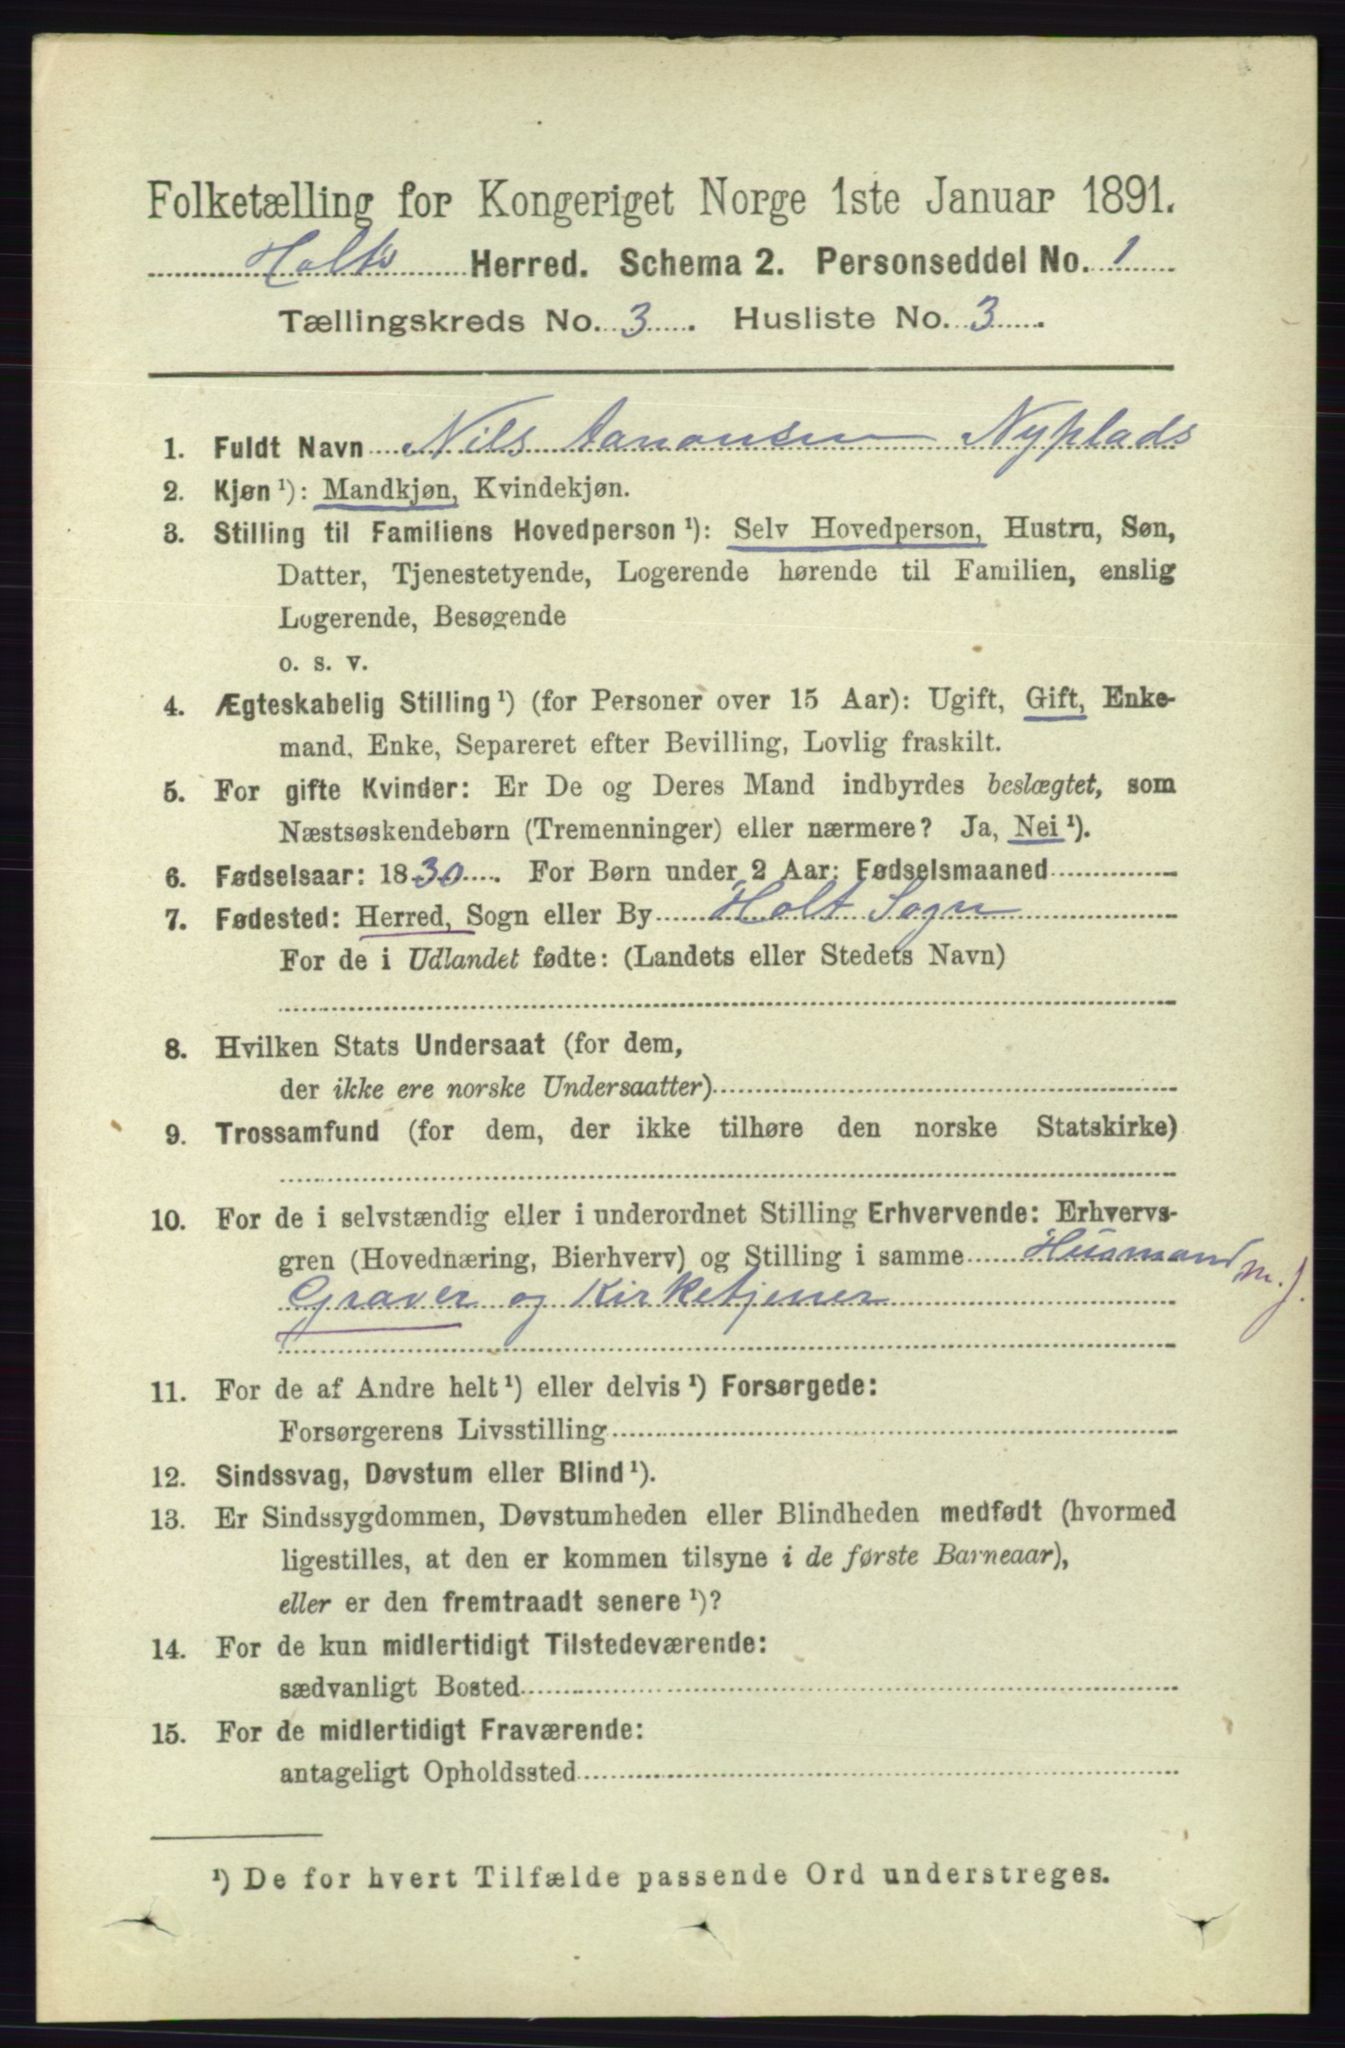 Folketælling for Kongeriget Norge 1ste Januar 1891.
Holts Herred. Schema 2. Personseddel No. 1
Tællingskreds No. 3. Husliste No. 3.
1. Fuldt Navn Nils Aanonsen Nyplads
2. Kjøn¹): Mandkjøn, Kvindekjøn.
3. Stilling til Familiens Hovedperson¹): Selv Hovedperson, Hustru, Søn,
Datter, Tjenestetyende, Logerende hørende til Familien, enslig
Logerende, Besøgende
o. s. v.
4. Ægteskabelig Stilling¹) (for Personer over 15 Aar): Ugift, Gift, Enke-
mand, Enke, Separeret efter Bevilling, Lovlig fraskilt.
5. For gifte Kvinder: Er De og Deres Mand indbyrdes beslægtet, som
Næstsøskendebørn (Tremenninger) eller nærmere? Ja, Nei¹).
6. Fødselsaar: 1830. For Børn under 2 Aar: Fødselsmaaned
7. Fødested: Herred, Sogn eller By Holt Sogn
For de i Udlandet fødte: (Landets eller Stedets Navn)
8. Hvilken Stats Undersaat (for dem,
der ikke ere norske Undersaatter)
9. Trossamfund (for dem, der ikke tilhøre den norske Statskirke)
10. For de i selvstændig eller i underordnet Stilling Erhvervende: Erhvervs-
gren (Hovednæring, Bierhverv) og Stilling i samme Husmand m. J.
Graver og Kirketjener
11. For de af Andre helt¹) eller delvis¹) Forsørgede:
Forsørgerens Livsstilling
12. Sindssvag, Døvstum eller Blind¹).
13. Er Sindssygdommen, Døvstumheden eller Blindheden medfødt (hvormed
ligestilles, at den er kommen tilsyne i de første Barneaar),
eller er den fremtraadt senere¹)?
14. For de kun midlertidigt Tilstedeværende:
sædvanligt Bosted
15. For de midlertidigt Fraværende:
antageligt Opholdssted
¹) De for hvert Tilfælde passende Ord understreges.